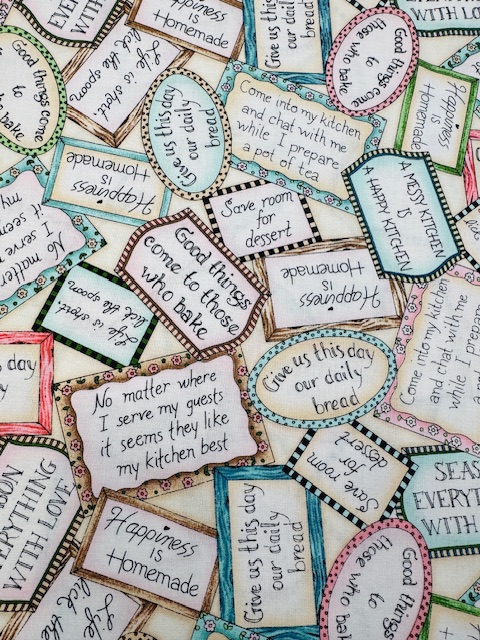 EVERY
WITH LOVE
Happiness
is
Homemade
Give us this day
our daily
bread
Good things
come to
those
who bake
EVERYT
WITH LO
Good things come
to
bake
Life is short.
lick the spoon
Give us this day
our daily
bread
Come into my kitchen
and chat with me
while I prepare
a pot of tea
Happiness
is
Homemade
Happiness
is
Homemade
Save room
for
dessert
A MESSY KITCHEN
IS
A HAPPY KITCHEN
No matter
I serve
it seem
my
Good things
come to those
who bake
Happiness
is
Homemade
Life is short.
lick the spoon
Come into my kitchen
and chat with me
while I prepare
day
Give us this day
our daily
bread
No matter where
I serve my guests
it seems they like
my kitchen best
Save room
for
dessert
SEAS
EVERYT
WITH
EVERYTHING
WITH LOVE
Happiness
is
Homemade
Give us this day
our daily
bread
Good things
come to
those who
Life is
lick the